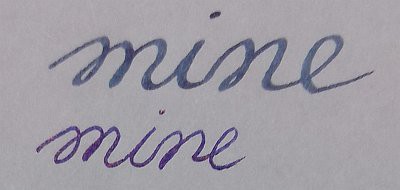 mine
mine